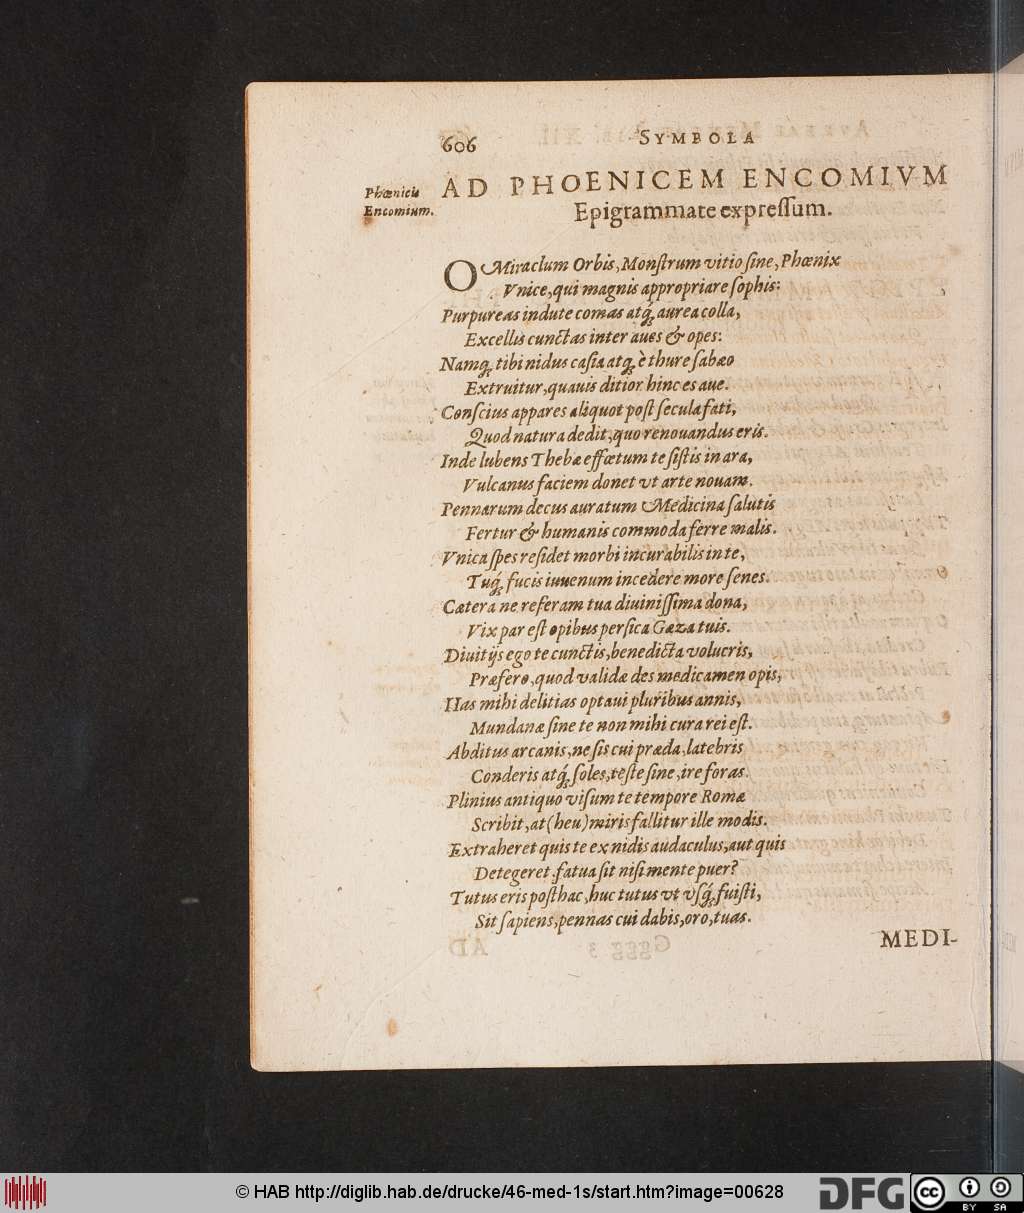 606 SYMBOLA
AD PHOENICEM ENCOMIVM
Phœnicis
Encomium.
Epigrammate expreſſum.
O Miraclum Orbis, Monſtrum vitio ſine, Phœnix
Vnice, qui magnis appropriare ſophis:
Purpureas indute comas atq́; aurea colla,
Excellis cunctas inter aues & opes:
Namq; tibi nidus caſia atq; è thure ſabæo
Extruitur, quauis ditior hinc es aue.
Conſcius appares aliquot poſt ſecula fati,
Quod natura dedit, quo renouandus eris.
Inde lubens Thebæ effœtum te ſiſtis in ara,
Vulcanus faciem donet vt arte nouam.
Pennarum decus auratum Medicina ſalutis
Fertur & humanis commoda ferre malis.
Vnica ſpes reſidet morbi incurabilis in te,
Tuq́; fucis iuuenum incedere more ſenes.
Cætera ne referam tua diuiniſſima dona,
Vix par eſt opibus perſica Gæza tuis.
Diuitijs ego te cunctis, benedicta volucris,
Præfero, quod validæ des medicamen opis,
Has mihi delitias optaui pluribus annis,
Mundanæ ſine te non mihi cura rei eſt.
Abditus arcanis, ne ſis cui præda, latebris
Conderis atq́; ſoles, teſte ſine, ire foras.
Plinius antiquo viſum te tempore Romæ
Scribit, at (heu) miris fallitur ille modis.
Extraheret quis te ex nidis audaculus, aut quis
Detegeret, fatua ſit niſi mente puer?
Tutus eris poſthac, huc tutus vt vſq́; fuiſti,
Sit ſapiens, pennas cui dabis, oro, tuas.
MEDI-
© HAB http://diglib.hab.de/drucke/46-med-1s/start.htm?image=00628
DFG
cc
BY SA